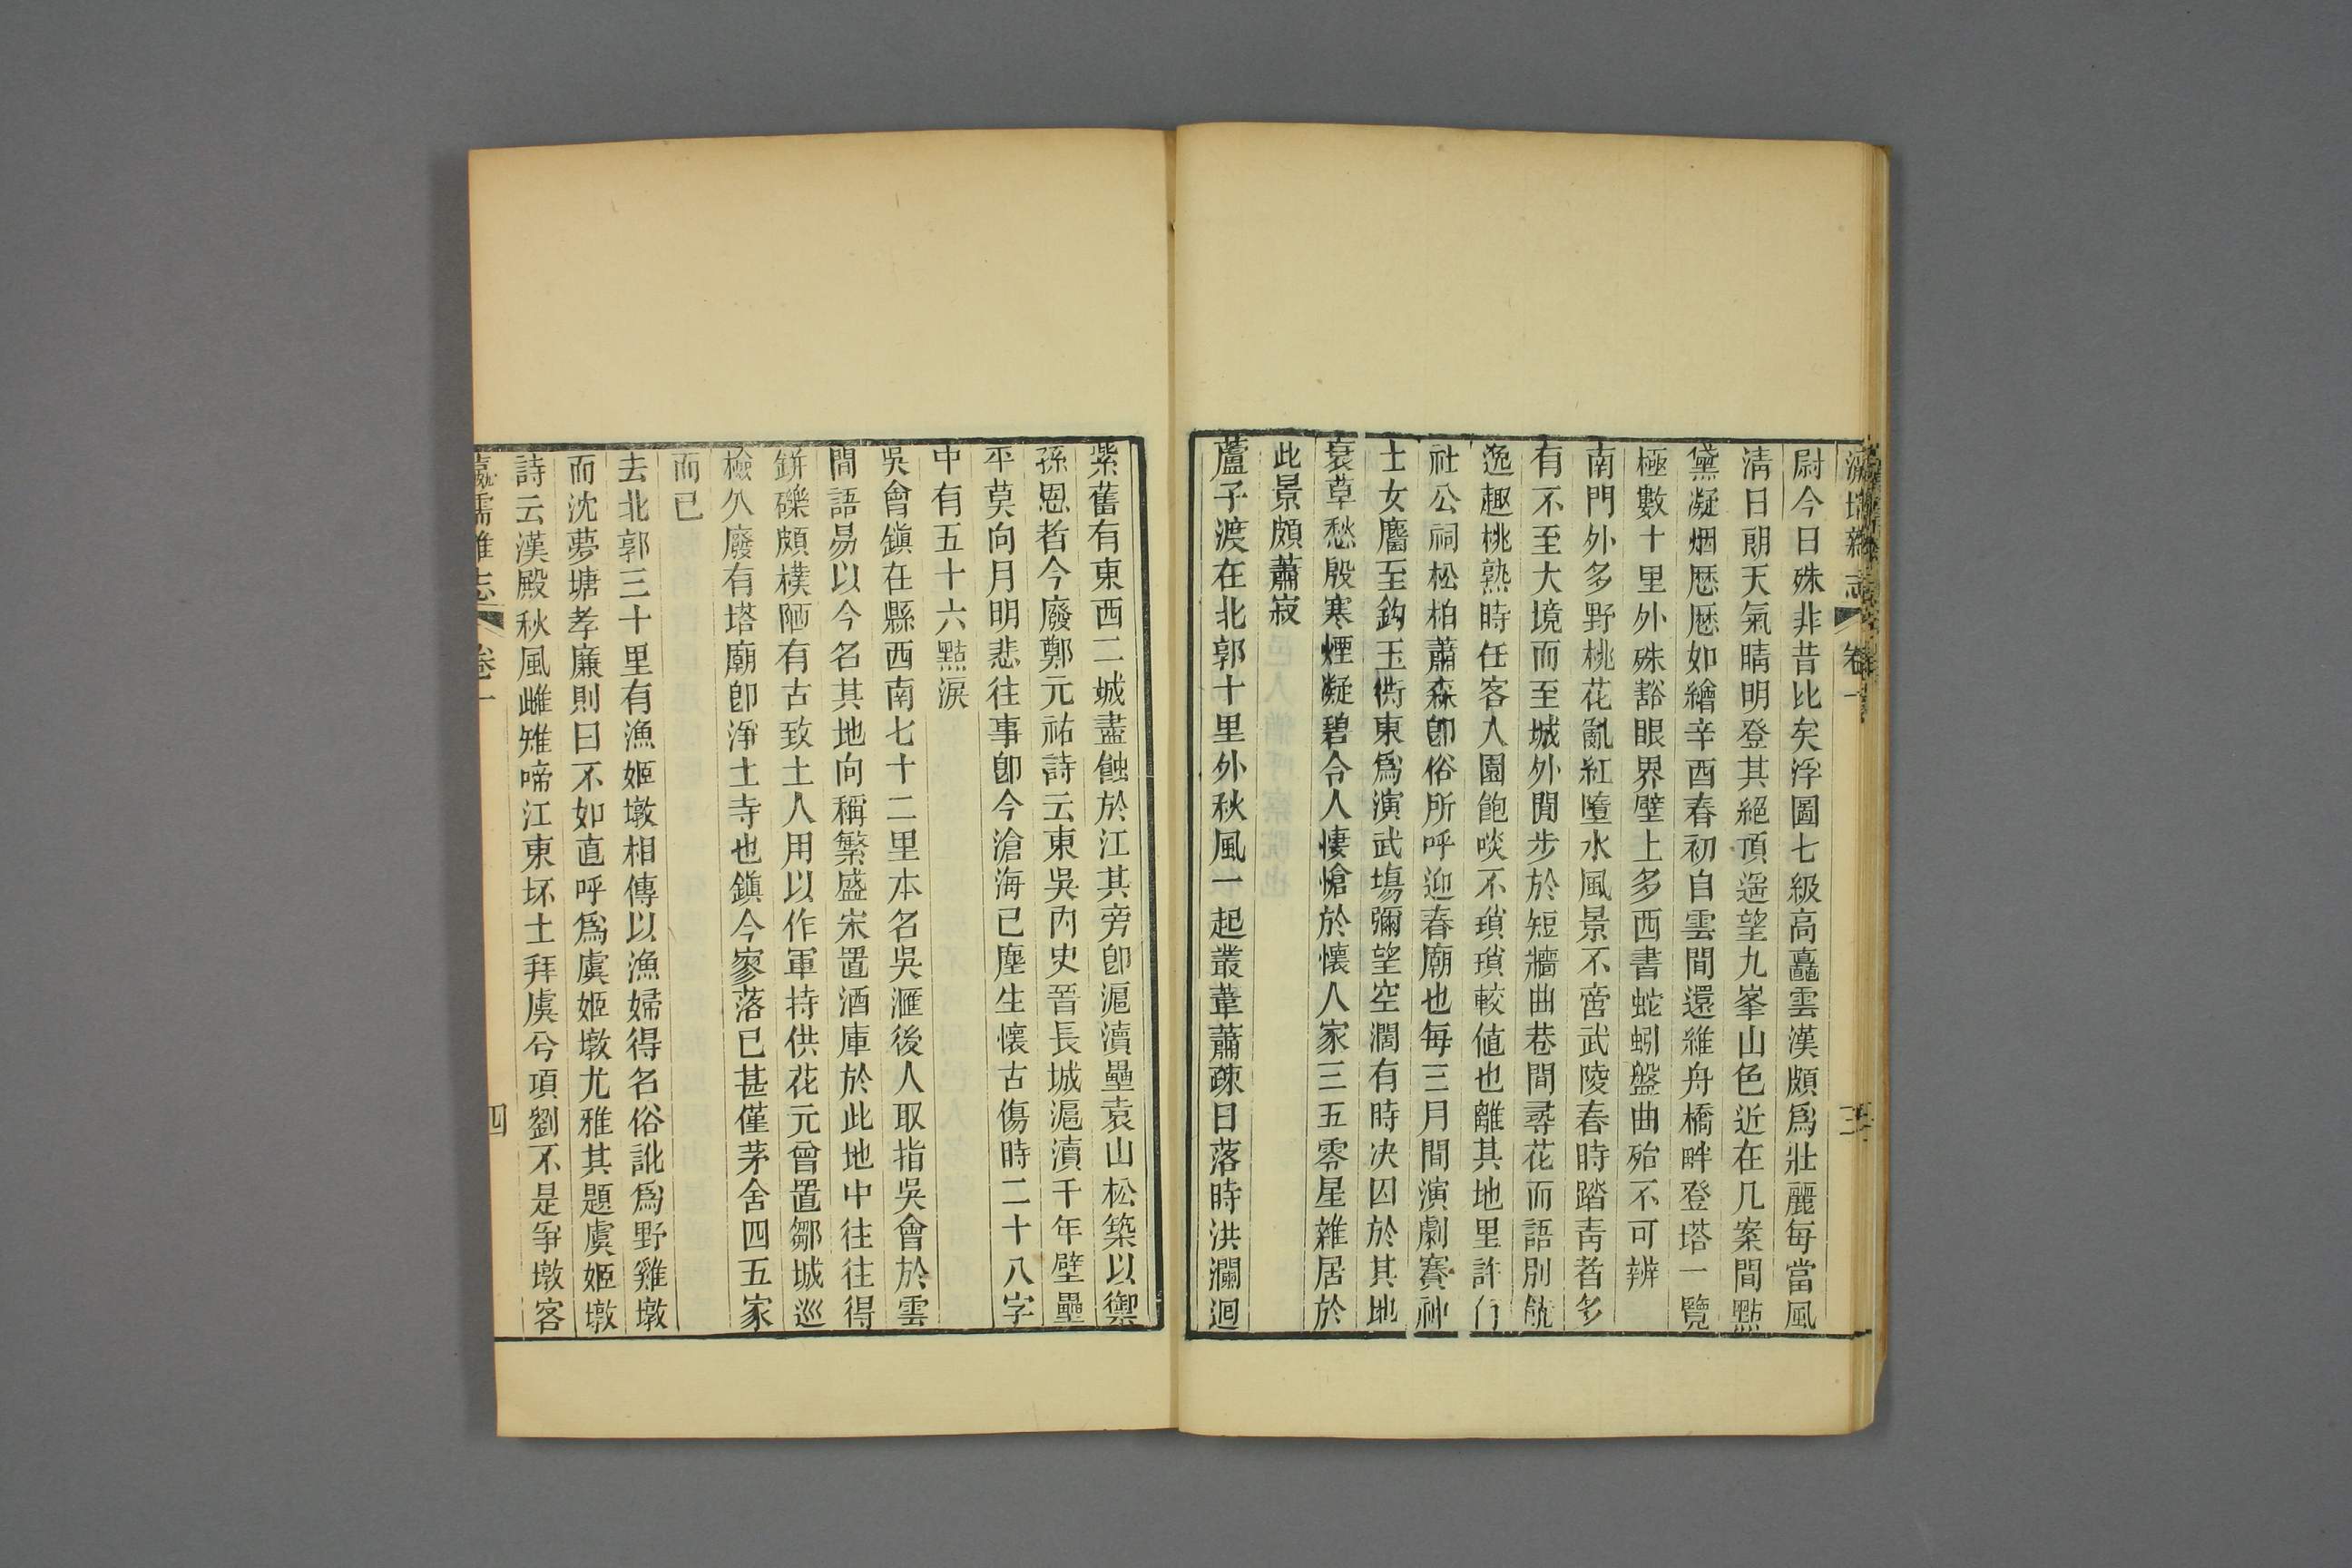 瀛壖雜志 卷一 三
尉今日殊非昔比矣浮圖七級高矗雲漢頗爲壯麗每當風
淸日朗天氣晴明登其絕頂遥望九峯山色近在几案間點
黛凝烟歷歷如繪辛酉春初自雲間還維舟橋畔登塔一覽
極數十里外殊豁眼界壁上多西書蛇蚓盤曲殆不可辨
南門外多野桃花亂紅墮水風景不啻武陵春時踏靑者多
有不至大境而至城外閒步於短牆曲巷間尋花而語別饒
逸趣桃熟時任客入園飽啖不瑣瑣較値也離其地里許有
社公祠松柏蕭森卽俗所呼迎春廟也每三月間演劇賽神
士女麕至鈎玉衖東爲演武塲彌望空濶有時决囚於其地
衰草愁殷寒煙凝碧令人悽愴於懷人家三五零星雜居於
此景頗蕭寂
蘆子渡在北郭十里外秋風一起叢葦蕭疎日落時洪瀾迴
縈舊有東西二城盡蝕於江其旁卽滬瀆壘袁山松築以禦
孫恩者今廢鄭元祐詩云東吳內史晉長城滬瀆千年壁壘
平莫向月明悲往事卽今滄海已塵生懷古傷時二十八字
中有五十六點淚
吳會鎭在縣西南七十二里本名吳滙後人取指吳會於雲
間語易以今名其地向稱繁盛宋置酒庫於此地中往往得
缾礫頗樸陋有古致土人用以作軍持供花元曾置鄒城巡
檢久廢有塔廟卽淨土寺也鎭今寥落已甚僅茅舍四五家
而已
去北郭三十里有漁姬墩相傳以漁婦得名俗訛爲野雞墩
而沈夢塘孝廉則曰不如直呼爲虞姬墩尤雅其題虞姬墩
詩云漢殿秋風雌雉啼江東坏土拜虞兮項劉不是爭墩客
瀛壖雜志 卷一 四